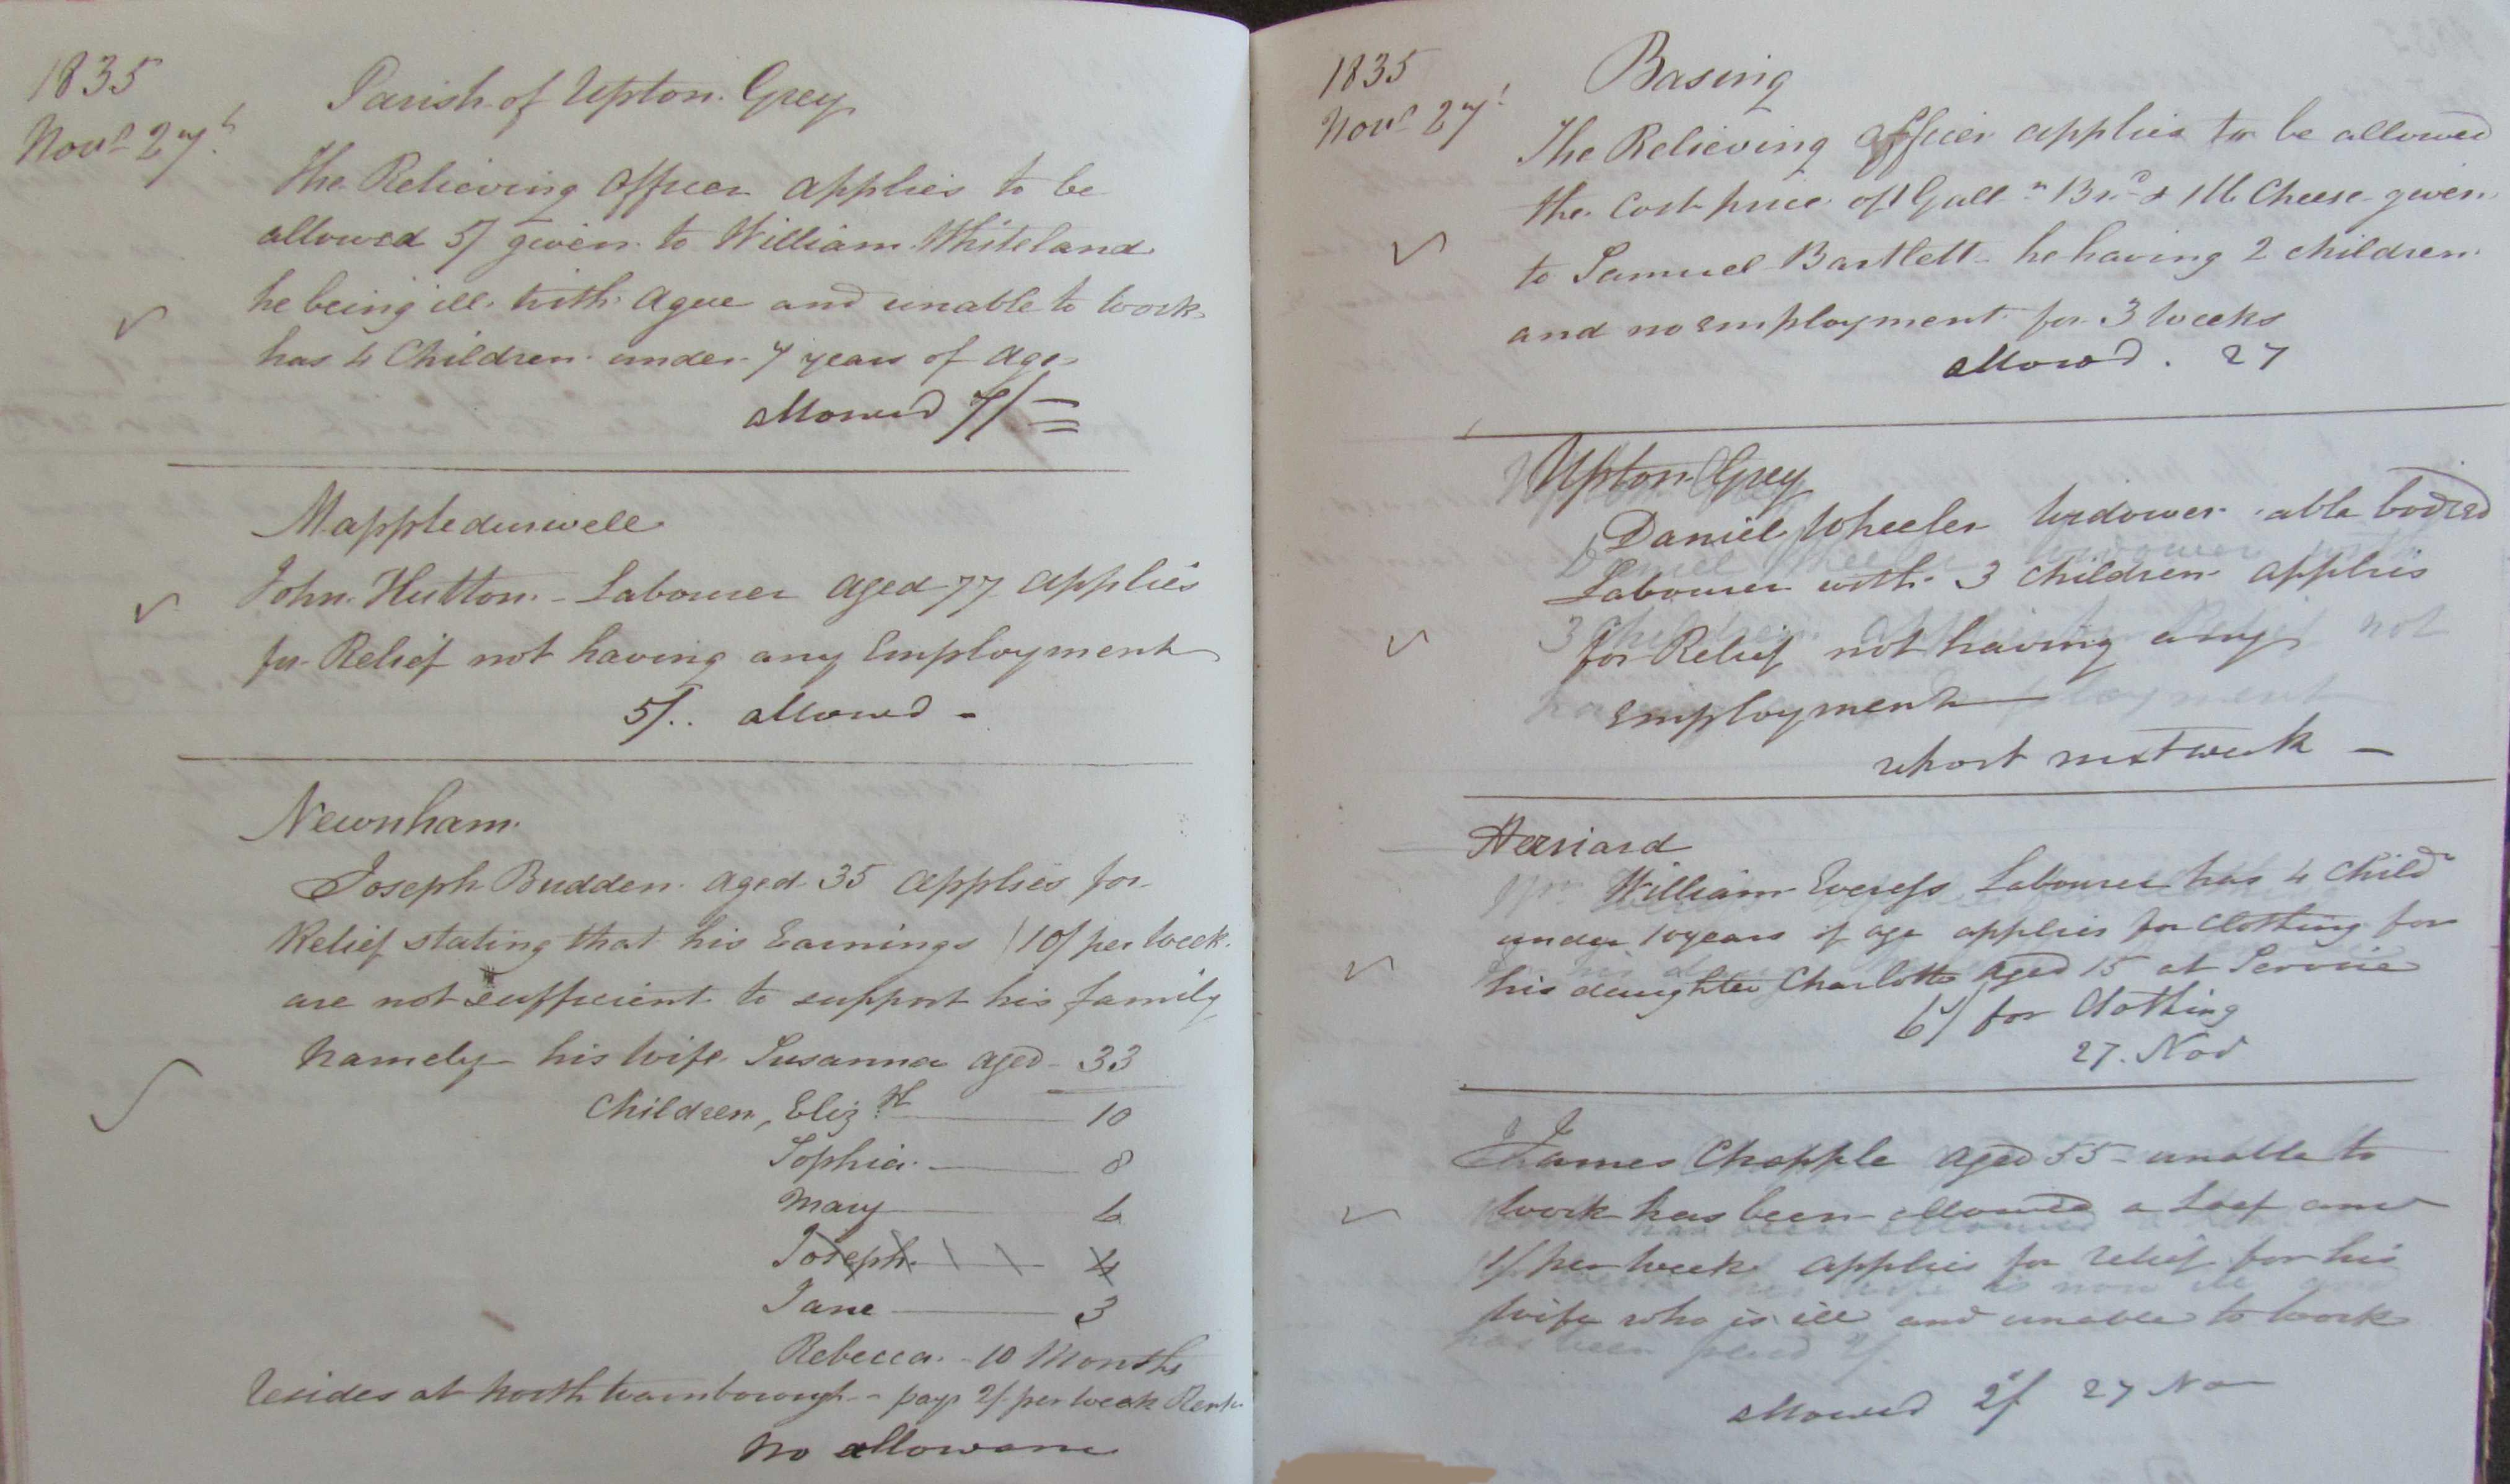 1835
Novr 27th
Parish of Upton Grey
The Relieving Officer applies to be
allowed 5/ given to William Whiteland
he being ill with Ague and unable to work
has 4 Children under 7 years of Age
allowed 7/-
Mappledurwell
John Hutton - Labourer aged 77 applies
for Relief not having any Employment
5/.. allowed -
Newnham
Joseph Budden aged 35 applies for
Relief stating that his Earnings 10/ per week
are not sufficient to support his family
Namely his wife Susanna aged - 33
Children, Elizth 10
Sophia 8
Mary 6
Joseph 4
Jane 3
Rebecca - 10 Months
Resides at North Warnborough - pays 2/ per week Rent
No allowance
1835
Novr 27th
Basing
The Relieving Officer applies to be allowed
the cost price of 1 Galln Brd & 1 lb Cheese given
to Samuel Bartlett he having 2 children
and no employment for 3 weeks
allowd. 27
Upton Grey
Daniel Wheeler Widower able bodied
Labourer with 3 children applies
for Relief not having any
Employment
report next week -
Herriard
William Labourer has 4 Childn
under 10 years of age applies for Clothing for
his daughter Charlotte aged 15 at Service
6/ for Clothing
27. Nov
James Chapple Aged 55 - unable to
work has been allowed a Loaf and
1/ per week applies for relief for his
wife who is ill and unable to work
allowed 2/ 27 Nov